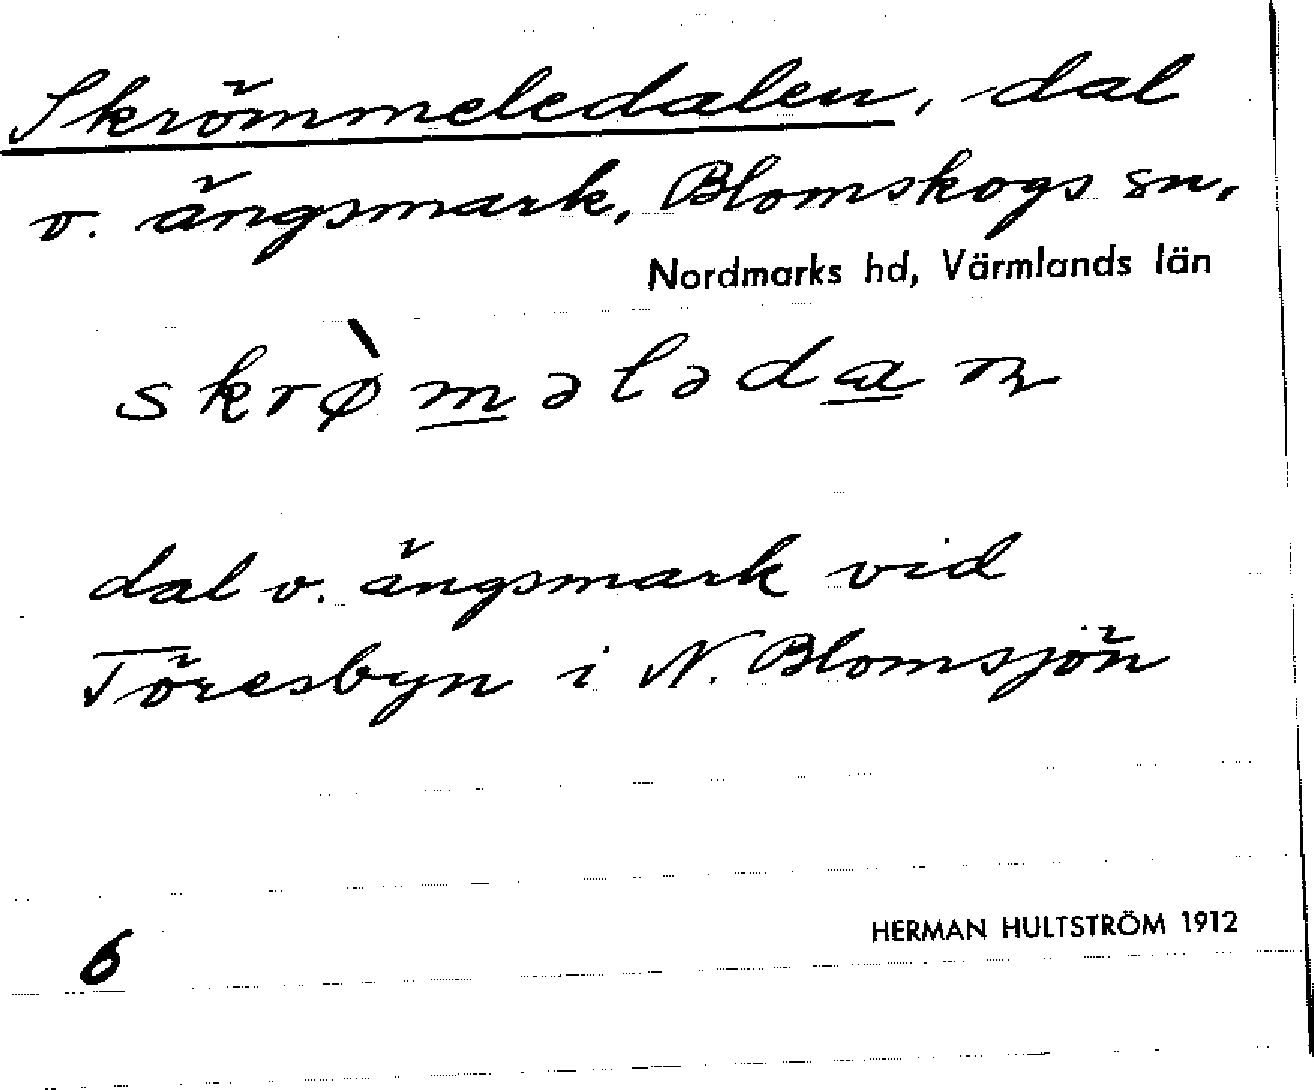 Skrömmeledalen, dal
o. ängsmark, Blomskogs sn,
Nordmarks hd, Värmlands län
skrø̀mələdaɳ
dal o. ängsmark vid
Töresbyn i N. Blomsjön
6
HERMAN HULTSTRÖM 1912